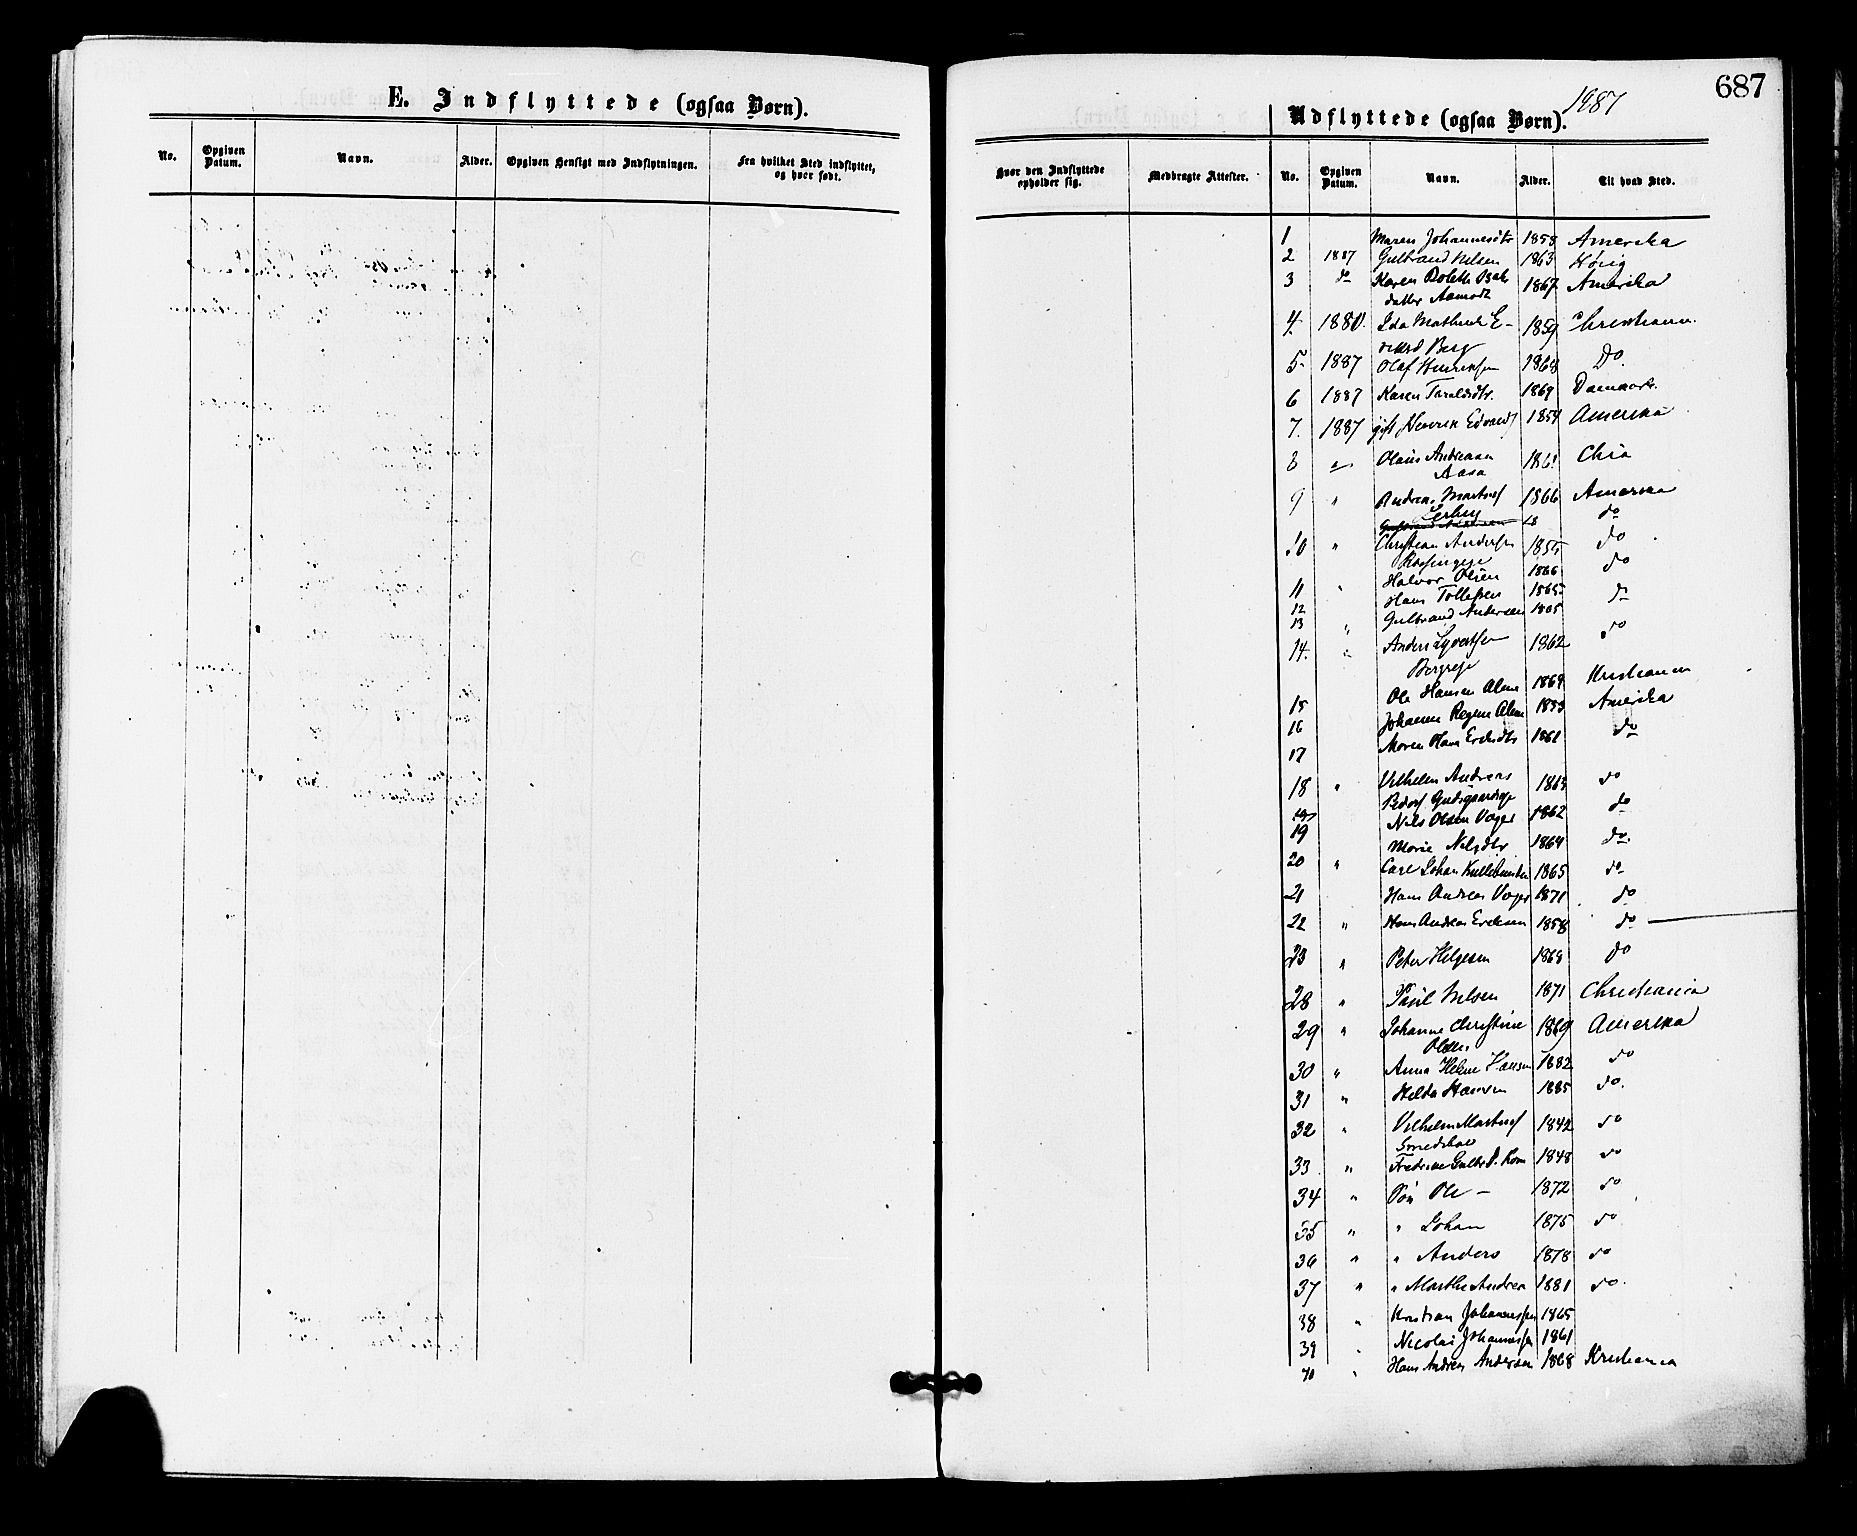 687
E. Indflyttede (ogsaa Børn).
No. Opgiven Datum. Navn. Alder. Opgiven Hensigt med Indflytningen. Fra hvilket Sted indflyttet, og hvor født.
Udflyttede (ogsaa Børn). 1887
Hvor den Indflyttede opholder sig. Medbragte Attester. No. Opgiven Datum. Navn. Alder. Til hvad Sted.
1 Maren Johannesdtr 1858 Amerika
2 1887 Gulbrand Nilsen 1863
3 do Karen Bolette 1867 Amerika
datter Aamodt
4. 1880. Ida Mathilde E- 1859 Christiania
Berg
5. 1887 Olaf Henriksen 1868 Do
6 1887 Karen Taraldsdtr. 1869 Danmark.
7. 1887 gift Henrik Edvards 1854 Amerika
8 " Olaus Andreasen 1861 Chra
Aasa
9 " Andreas Martins 1866 Amerika
18 do
10 " Christian Andersen 1855 do
Halvor Olsen 1866 do
11 " Hans Tollefsen 1865
12 Gulbrand Andersen 1865 do
13 "
14. " Anders Syvertsen 1862 do
Ole Hansen Alm 1869 Kristiania
15 Johanne Regine Alm 1853 Amerika
16
17 Maren Hans Eriksdtr 1861 do
18 " Vilhelm Andreas 1863 do
19 Nils Olsen Vager 1862 do
19
Marie Nilsdtr 1864 do.
20 " Carl Johan 1865 do
21 Hans Andreas Vager 1871 do
22 " Hans Andreas Eriksen 1858 do
23 " Peter Helgesen 1869 do
28 " Paul Nilsen 1871 Christiania
29 " Johanne Christine 1869 Amerika
Olsen
30 " Anna Helene Hansen 1882 do
31 " Hilda Hansen 1885 do.
32 " Vilhelm Martins 1842 do
33 " Fredrikke Gulbr.d. Kone 1848 do
34 " Søn Ole - 1872 do
35 " " Johan 1875 do
36 " " Anders 1878 do
37 " " Marthe Andrea 1881 do.
38 " Kristian Johannessen 1865
39 " Nicolai Johannessen 1861
40 " Hans Andreas Andersen 1868 Kristiania